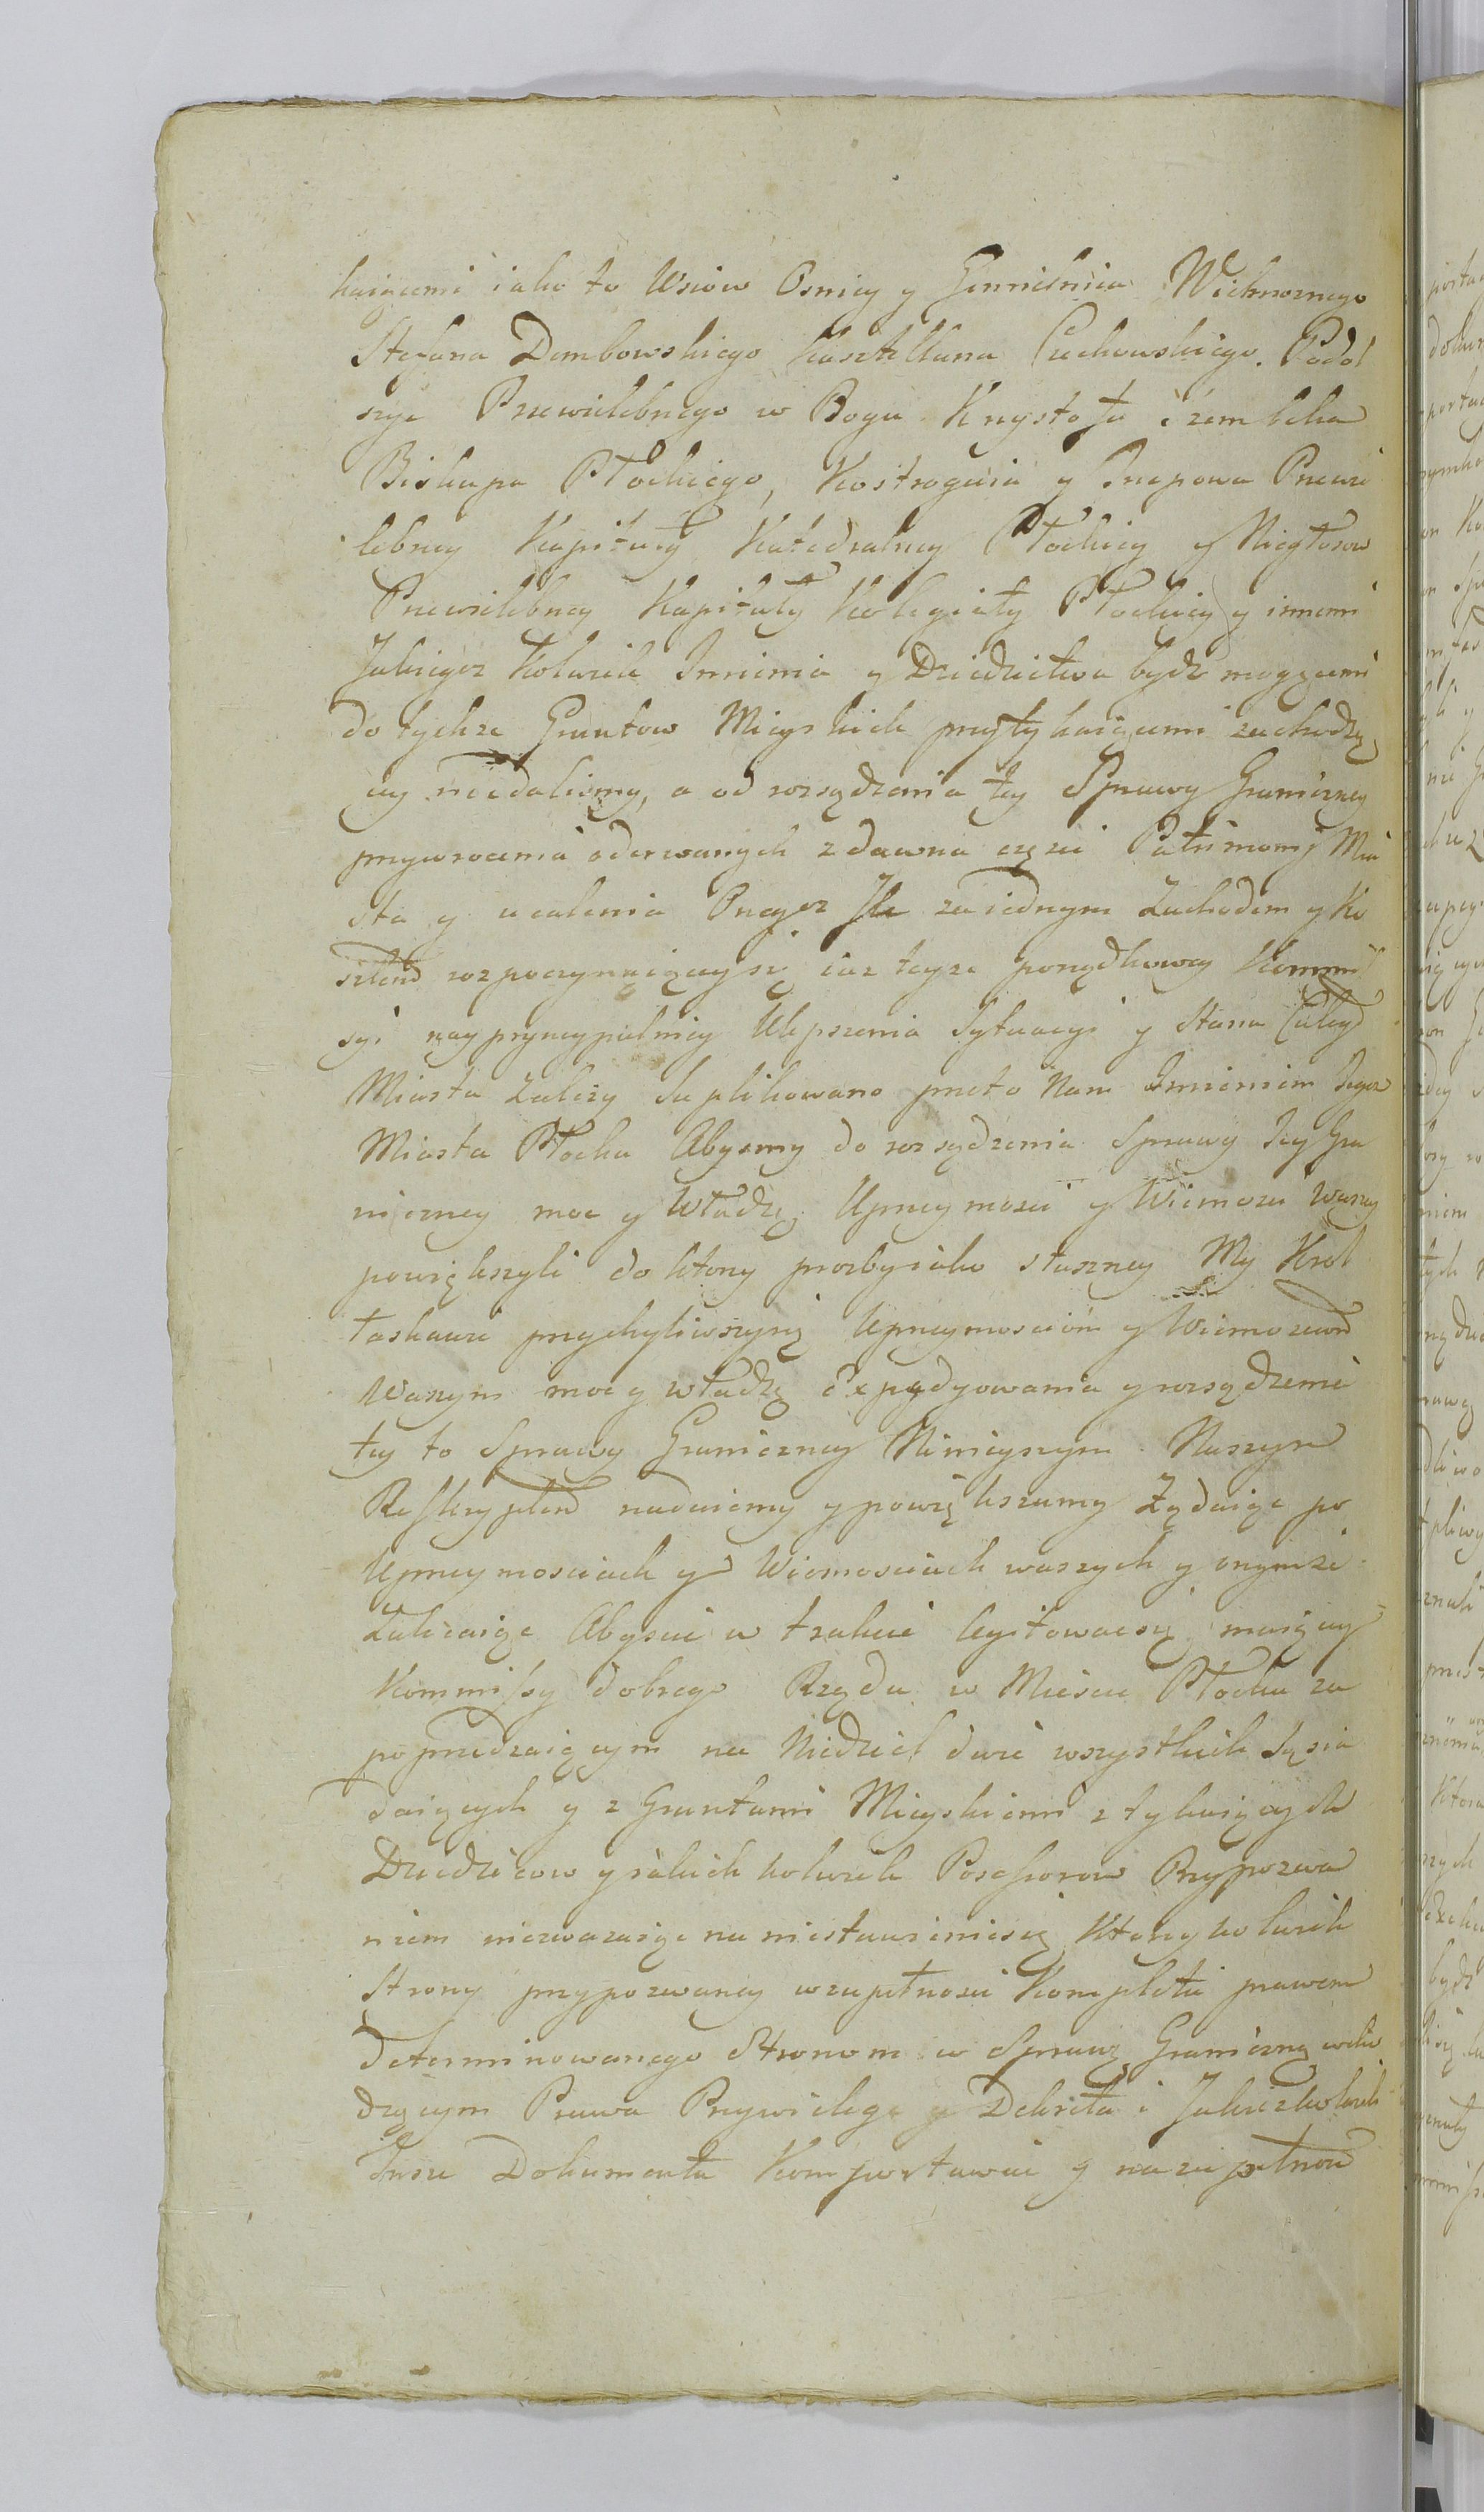 kaiącemi iako to Wsiow Osnicy y Gmnielnia Wielmoznego
Stefana Dembowskiego Kasztellana Ciechowskiego. Podol
szyc Przewielebnego w Bogu Krysztofa
Biskupa Płockiego, Kostrogaia y Trzepowa Przewie
lebney Kapituły Katedralney Płockiey y Niegłosow
Przewielebney Kapituły Kolegiaty Płockiey y innemi
Jakiegoz kolwiek Imienia y Dziedzictwa bydz mogącemi
do tychze Gruntow Mieyskich przytykaiącemi zachodzą
cey niedalismy, a od rozsądzenia tey Sprawy Graniczney
przywrocenia oderwanych z dawna częsci Patrimonij Mia
sta y ucalenia Onegoz Ile za iednym Zachodem y Ko
sztem rozpoczynaiąceysię iuz teyze porządkowey Kommis
syi naypryncypalniey Ulepszenia Sytuacyi y Stanu Całego
Miasta Zalezy Suplikowano przeto Nam Imieniem Tegoz
Miasta Płocka Abysmy do rozsądzenia Sprawy Tey Gra
niczney moc y Władzę Uprzeymosci y Wiernosci Waszey
powiększyli do ktory prozby iako słuszney My Krol
łaskawie przychyliwszysię Uprzeymosciom y Wiernosciom
Waszym moc y władzę Expedyowania y rozsądzenia
tey to Sprawy Graniczney Ninieyszym Naszym
Reskryptem nadaiemy y powiększamy Ządaiąc po
Uprzeymosciach y Wiernosciach waszych y onymze
Zalecaiąc Abyscie w trakcie legitowacsię maiącey
Kommissyi dobrego Rządu w Miescie Płocku za
poprzedzaiącym na Niedziel dwie wszystkich Sąsia
daiących y z Gruntami Mieyskiemi stykaiących
Dziedzicow y iakich kolwiek Possessorow Przypozwa
niem niezwazaiąc na niestawieniesię ktorey kolwiek
Strony przypozwaney w zupełnosci Kompletu prawem
determinowanego Stronom w Sprawę Graniczną wcho
dzącym Prawa Przywilege y Dekreta i Jakiezkolwiek
Insze Dokumenta Komportowac y na zupełnosc